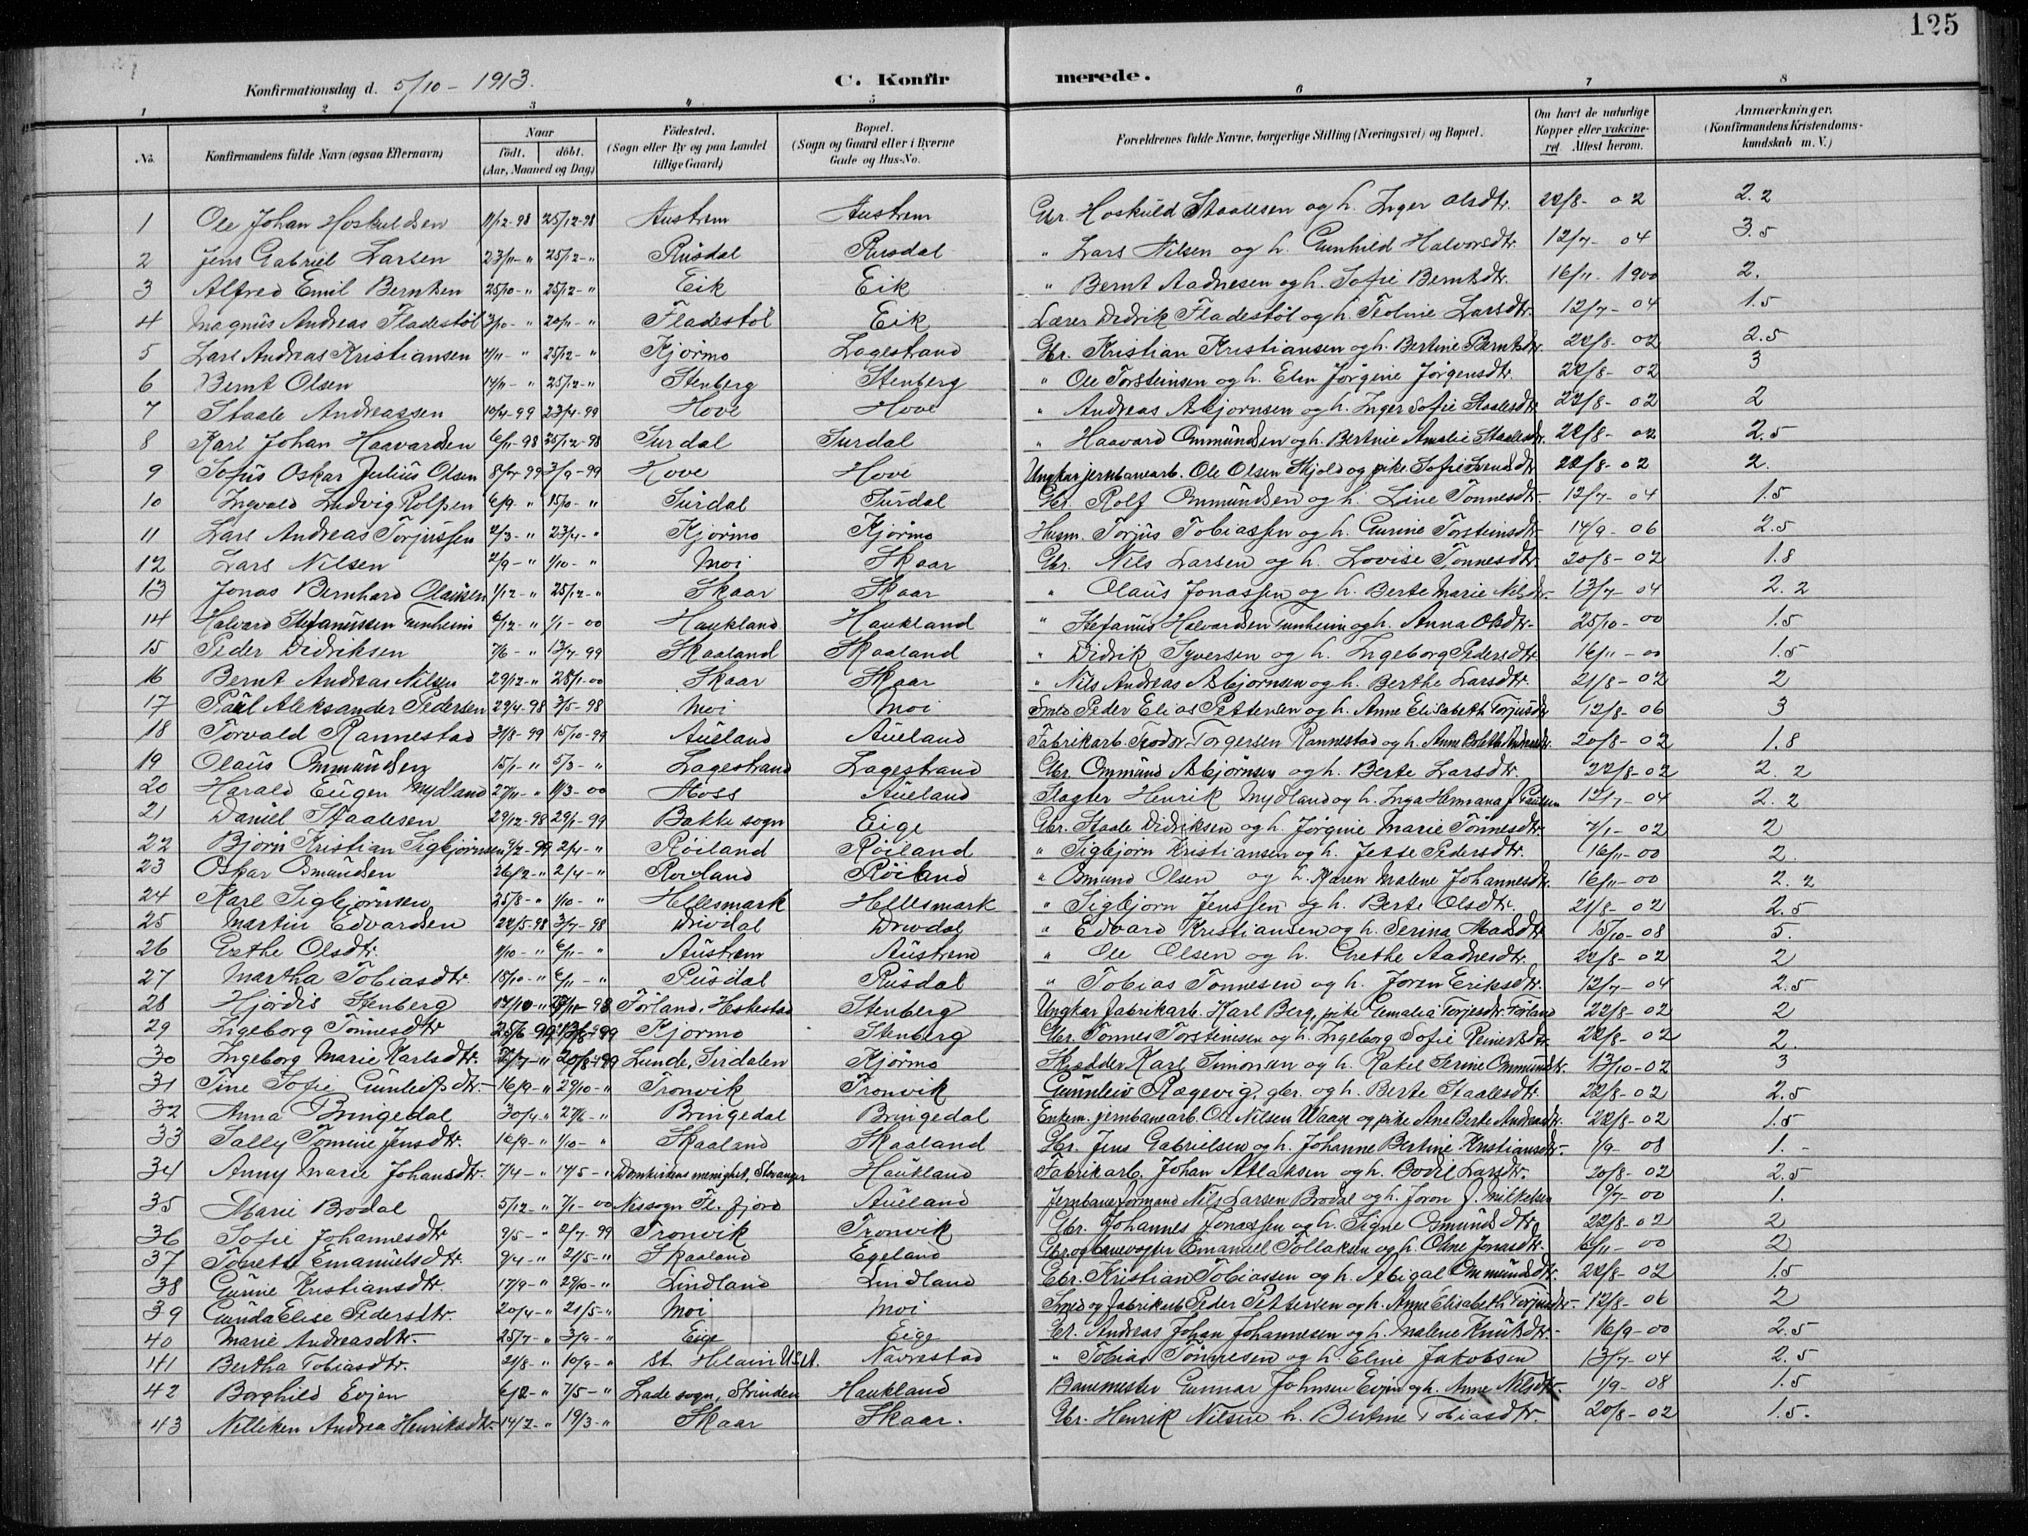 125
Konfirmationsdag d. 5/10 - 1913.
C. Konfirmerede.
1 2 3 4 5 6 7 8
No. Konfirmandens fulde Navn (ogsaa Efternavn) Naar født. døbt. (Aar, Maaned og Dag) Födested. (Sogn eller By og paa Landet tillige Gaard) Bopæl. (Sogn og Gaard eller i Byerne Gade og Hus-No. Forældrenes fulde Navne, borgerlige Stilling (Næringsvei) og Bopæl. Om havt de naturlige Kopper eller vakcineret. Attest herom. Anmærkninger. (Konfirmandens Kristendomskundskab m. V.)
1 Ole Johan Hoskuldsen 11/12-98 25/12-98 Austrem Austrem Gbr. Hoskuld Staalesen og h. Inger Olsdtr. 22/8-02 2.2
2 Jens Gabriel Larsen 23/11-" 25/12-" Rusdal Rusdal " Lars Nilsen og h. Gunhild Halvorsdtr. 12/7-04 3.5
3 Alfred Emil Berntsen 25/10-" 25/12-" Eik Eik " Bernt Aadnesen og h. Sofie Berntsdtr. 16/11-1900 2.
4 Magnus Andreas Fladestøl 3/10-" 20/11-" Fladestøl Eik Lærer Didrik Fladestøl og h. Teoline Larsdtr. 12/7-04 1.5
5 Lars Andreas Kristiansen 4/11-" 25/12-" Kjørmo Lagestrand Gbr. Kristian Kristiansen og h. Bertine Berntsdtr. 22/8-02 2.5
6 Bernt Olsen 14/11-" 25/12-" Stenberg Stenberg " Ole Torsteinsen og h. Elen Jørgine Jørgensdtr. 22/8-02 3
7 Staale Andreassen 10/4-99 23/4-99 Hove Hove " Andreas Abjørnsen og h. Inger Sofie Staalesdtr. 22/8-02 2
8 Karl Johan Haavardsen 6/11-98 25/12-98 Surdal Surdal " Haavard Ommundsen og h. Bertine Amalie Staalesdtr. 22/8-02 2.5
9 Sofus Oskar Julius Olsen 8/7-99 3/9-99 Hove Hove Ungkar jernbanearb. Ole Olsen Skjold og pike Sofie 22/8-02 2.
10 Ingvald Ludvig Rolfsen 6/9 " 15/10-" Surdal Surdal Gbr. Rolf Ommundsen og h. Line Tønnesdtr. 12/7-04 1.5
11 Lars Andreas Torjussen 2/3-" 23/4-" Kjørmo Kjørmo Husm. Torjus Tobiassen og h. Gurine Torsteinsdtr. 14/9-06 2.5
12 Lars Nilsen 2/9-" 1/10-" Moi Skaar Gbr. Nils Larsen og h. Lovise Tønnesdtr. 20/8-02 1.8
13 Jonas Bernhard Olausen 1/12-" 25/12-" Skaar Skaar " Olaus Jonassen og h. Berte Marie Nilsdtr. 13/7-04 2.2
14 Halvard Stefanussen Tunheim 6/12-" 1/1-00 Haukland Haukland " Stefanus Halvardsen Tunheim og h. Anna Olsdtr. 25/10-00 1.5
15 Peder Didriksen 7/6-" 13/7-99 Skaaland Skaaland " Didrik Syversen og h. Ingeborg Pedersdtr. 16/11-00 1.5
16 Bernt Andreas Nilsen 29/12-" 28/1-00 Skaar Skaar " Nils Andreas Abjørnsen og h. Berthe Larsdtr. 21/8-02 2
17 Paul Aleksander Pedersen 29/4-98 3/5-98 Moi Moi Smed Peder Elias Pettersen og h. Anne Elisabeth Torjusdtr 12/8-06 3
18 Torvald Rannestad 31/8-99 15/10-99 Aueland Aueland Fabrikarb. Teodor Torgersen Rannestad og h. Anne Bolette Andreasdtr. 20/8-02 1.8
19 Olaus Ommundsen 15/1-" 5/3-" Lagestrand Lagestrand Gbr. Ommund Abjørnsen og h. Berte Larsdtr. 22/8-02 2.2
20 Harald Eugen Mydland 27/11-" 11/3-00 Moss Aueland Slagter Henrik Mydland og h. Inga Hermana J. Paulsen 12/7-04 2.2
21 Daniel Staalesen 29/12-98 29/1-99 Bakke sogn Eige Gbr. Staale Didriksen og h. Jørgine Marie Tønnesdtr. 7/1-02 2
22 Bjørn Kristian Sigbjørnsen 9/2-99 2/4-" Røiland Røiland " Sigbjørn Kristiansen og h. Jesse Pedersdtr. 16/11-00 2.
23 Oskar Osmundsen 26/2-" 2/4-" Røiland Røiland " Osmund Olsen og h. Karen Malene Johannesdtr. 16/11-00 2.2
24 Karl Sigbjørnsen 25/8-" 1/10-" Hellesmark Hellesmark " Sigbjørn Jenssen og h. Berte Olsdtr. 21/8-02 2.5
25 Martin Edvardsen 22/5-98 3/7-98 Drivdal Drivdal " Edvard Kristiansen og h. Serina Madsdtr. 15/10-08 5.
26 Grethe Olsdtr. 1/10-" 6/11-" Austrem Austrem " Ole Olsen og h. Grethe Aadnesdtr. 22/8-02 2
27 Martha Tobiasdtr. 15/10-" 6/11-" Rusdal Rusdal " Tobias Tønnesen og h. Joren Eriksdtr. 12/7-04 2.5
28 Hjørdis Stenberg 17/10-" 98 Førland, Heskestad Stenberg Ungkar fabrikarb. Karl Berg, pike Gemalia Torjesdtr. Førland 22/8-02 2
29 Ingeborg Tønnesdtr 25/6-99 13/8-99 Kjørmo Stenberg Gbr. Tønnes Torsteinsen og h. Ingeborg Sofie Reinertsdtr. 22/8-02 2.
30 Ingeborg Marie Karlsdtr. 2/7-" 20/8-99 Lunde, Sirdalen Kjørmo Skrædder Karl Simonsen og h. Rakel Serine Ommundsdtr. 13/10-02 3
31 Tine Sofie Gunleifsdtr. 16/9-" 29/10-" Tronvik Tronvik Gunnleiv Rægevig, gbr. og h. Berte Staalesdtr. 22/8-02 2.5
32 Anna Bringedal 30/4-" 27/6-" Bringedal Bringedal Enkem. jernbanearb. Ole Nilsen Waage og pike Ane Berte Andreasdtr. 22/8-02 1.5
33 Sally Tomine Jensdtr. 16/9-" 1/10-" Skaaland Skaaland Gbr. Jens Gabrielsen og h. Johanne Bertine Kristiansdtr. 1/9-08 1.-
34 Anny Marie Johansdtr. 7/4-" 17/5-" Domkirkens menighet, Stavanger Haukland Fabrikarb. Johan Atlaksen og h. Bodil Larsdtr. 20/8-02 2.5
35 Marie Brodal 5/12-" 7/1-00 Nessogn Fl. fjord Aueland Jernbaneformand Nils Larsen Brodal og h. Joron J. Mikkelsen 9/7-00 1.
36 Sofie Johannesdtr 9/5-" 2/7-99 Tronvik Tronvik Gbr. Johannes Jonassen og h. Signe Osmundsdtr. 22/8-02 2
37 Tonette Emanuelsdtr. 9/4-" 21/5-" Skaaland Egeland Gbr og banevogter Emanuel Tollaksen og h. Oline Jonasdtr. 6/11-00 2
38 Gurine Kristiansdtr. 17/9-" 29/10-" Lindland Lindland Gbr. Kristian Tobiassen og h. Abigal Ommundsdtr. 22/8-02 1.5
39 Gunda Elise Pedersdtr. 20/4-" 21/5-" Moi Moi Smed og fabrikarb. Peder Pettersen og h. Anne Elisabeth Torjusdtr. 12/8-06 2
40 Marie Andreasdtr. 25/7-" 3/9-" Eige Eige Gbr. Andreas Johan Johannesen og h. Malene Knutsdtr. 16/9-00 2.5
41 Bertha Tobiasdtr. 21/8-" 10/9-" St. Hilair U.S.A. Navrestad " Tobias Tønnesen og h. Eline Jakobsen 13/7-04 2.5
42 Borghild Evjen 6/2-" 7/5-" Lade sogn, Strinden Haukland Banemester Gunnar Johnsen Evjen og h. Anne Nilsdtr. 1/9-08 1.5
43 Nilliken Andrea Henriksdtr. 14/2-" 19/3-" Skaar Skaar. Gbr. Henrik Nilsen h. Bertine Tobiasdtr. 20/8-02 1.5.